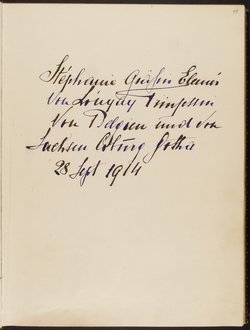 Stéphanie Gräfin Elemér
von Lónyay Prinzessin
von Belgien und von
Sachsen Coburg Gotha
28 Sept 1914